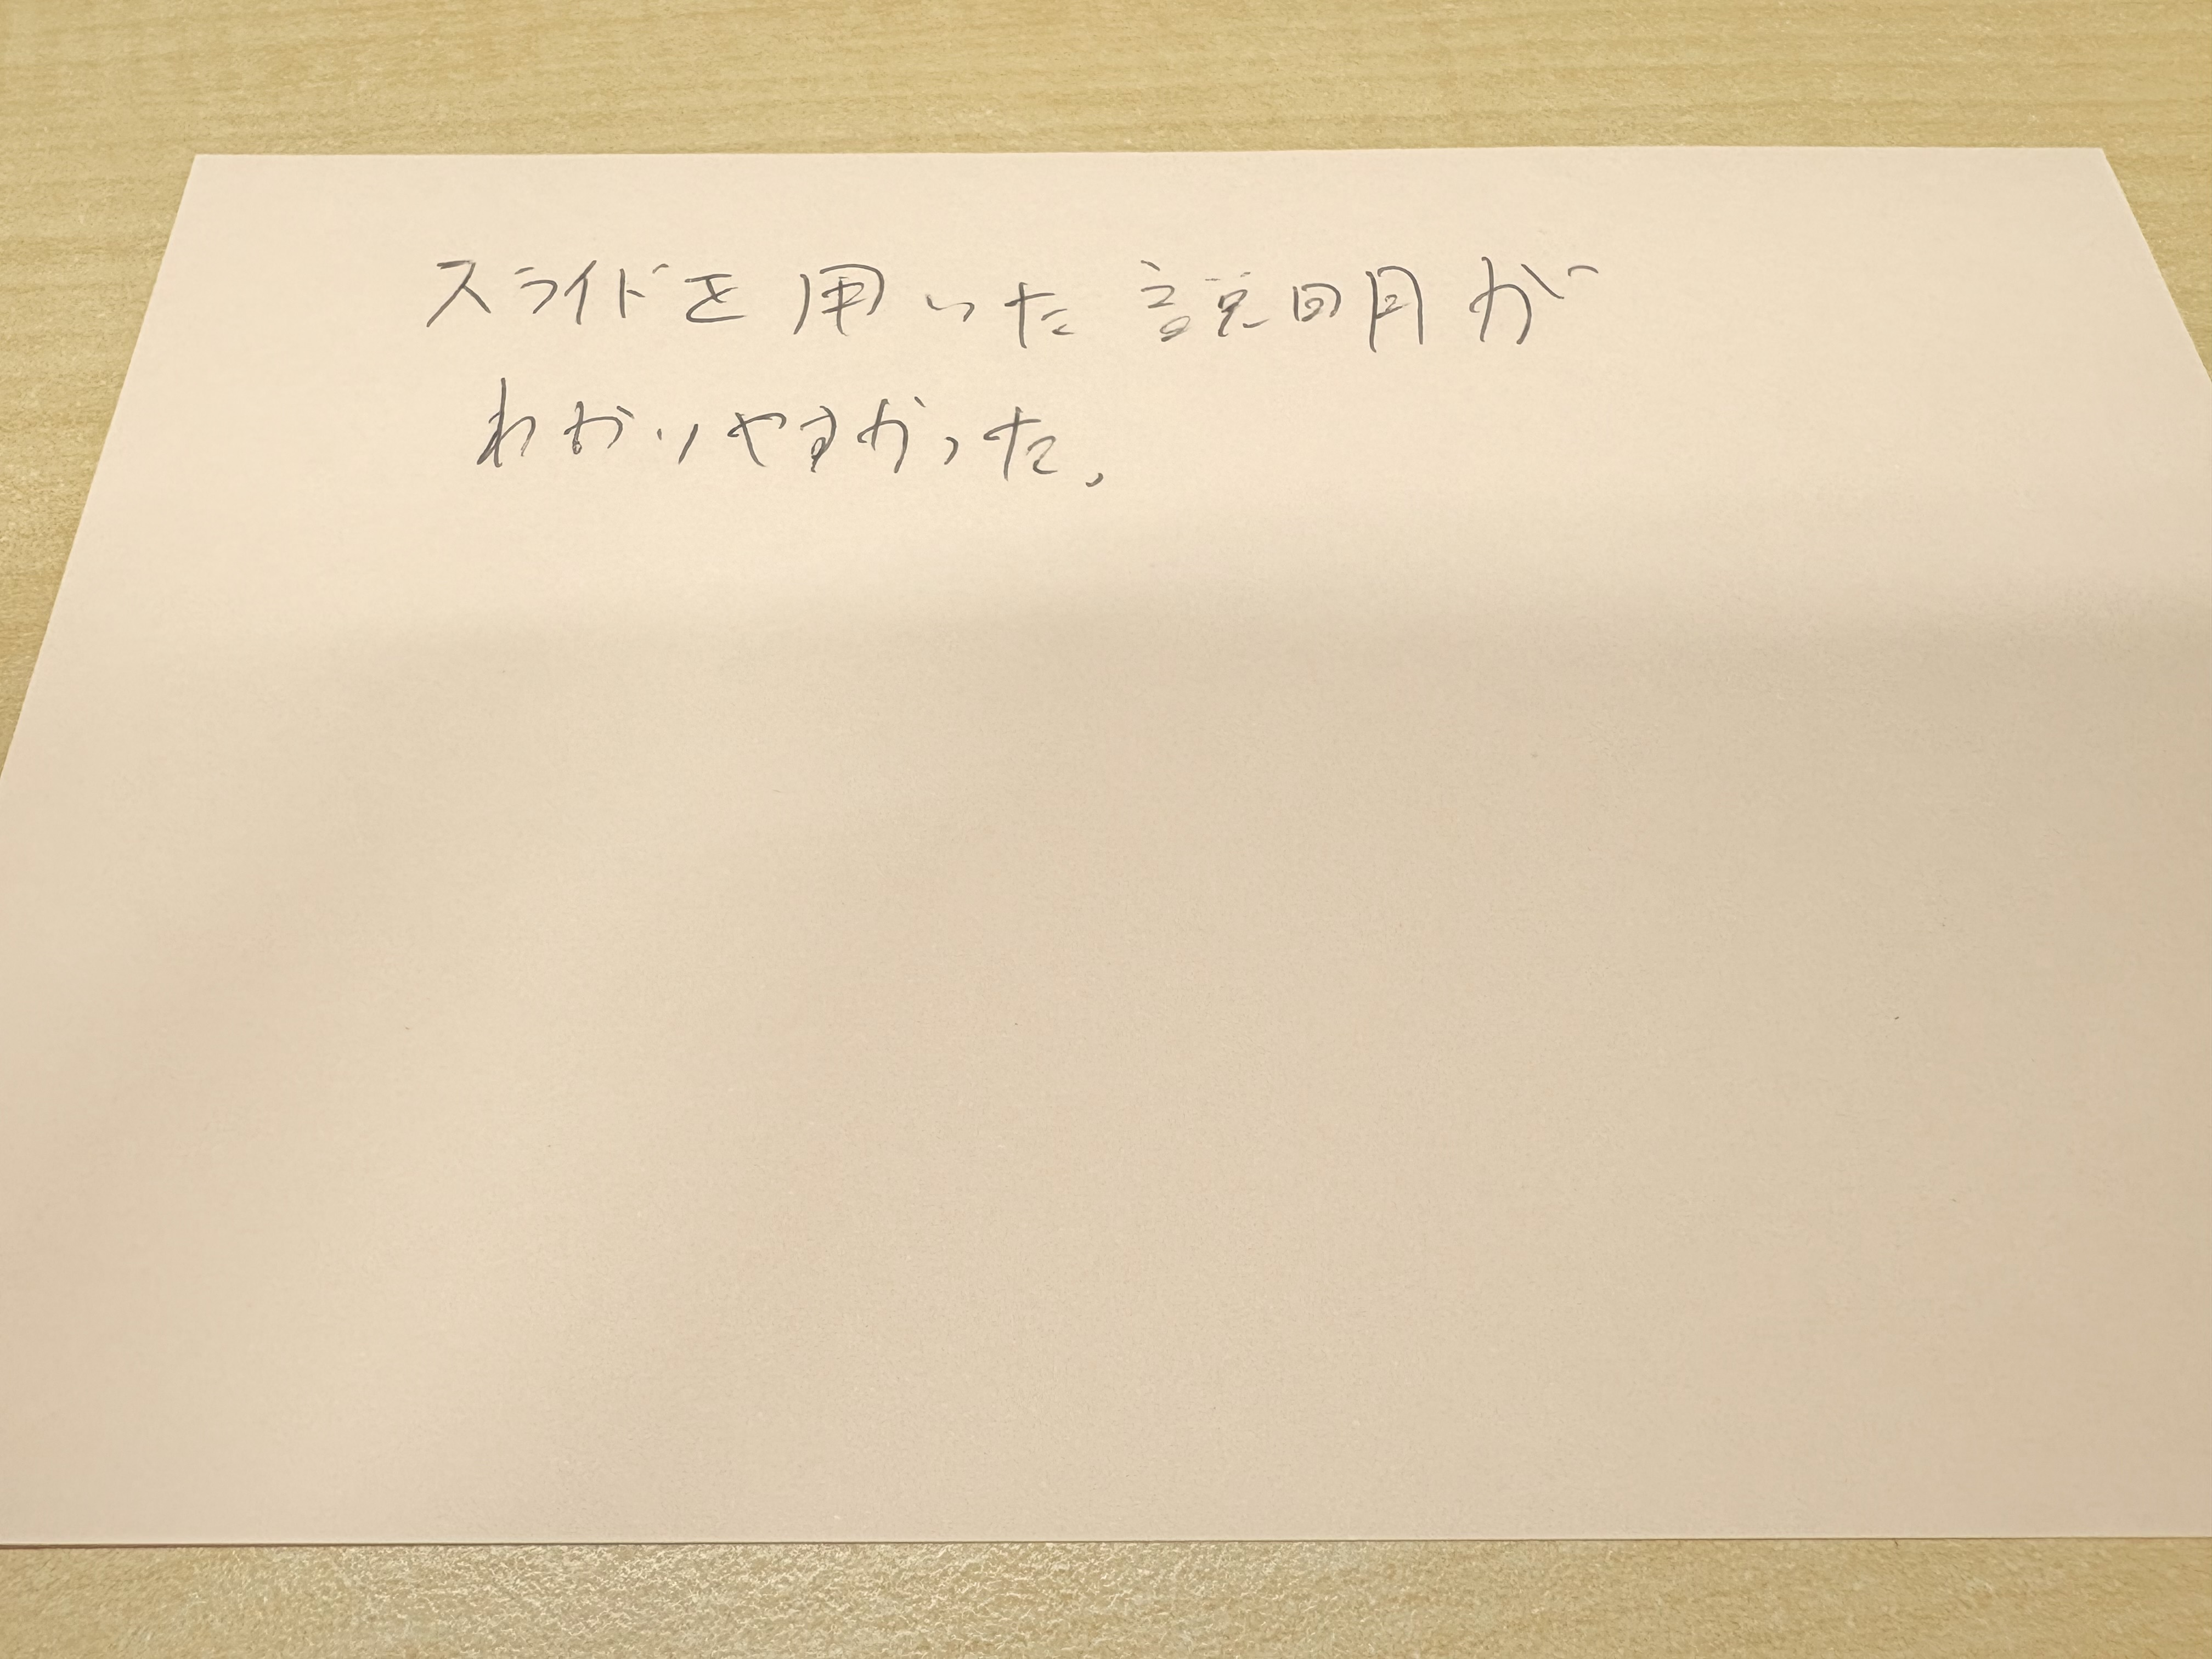 スライドを用いた説明が
わかりやすかった。